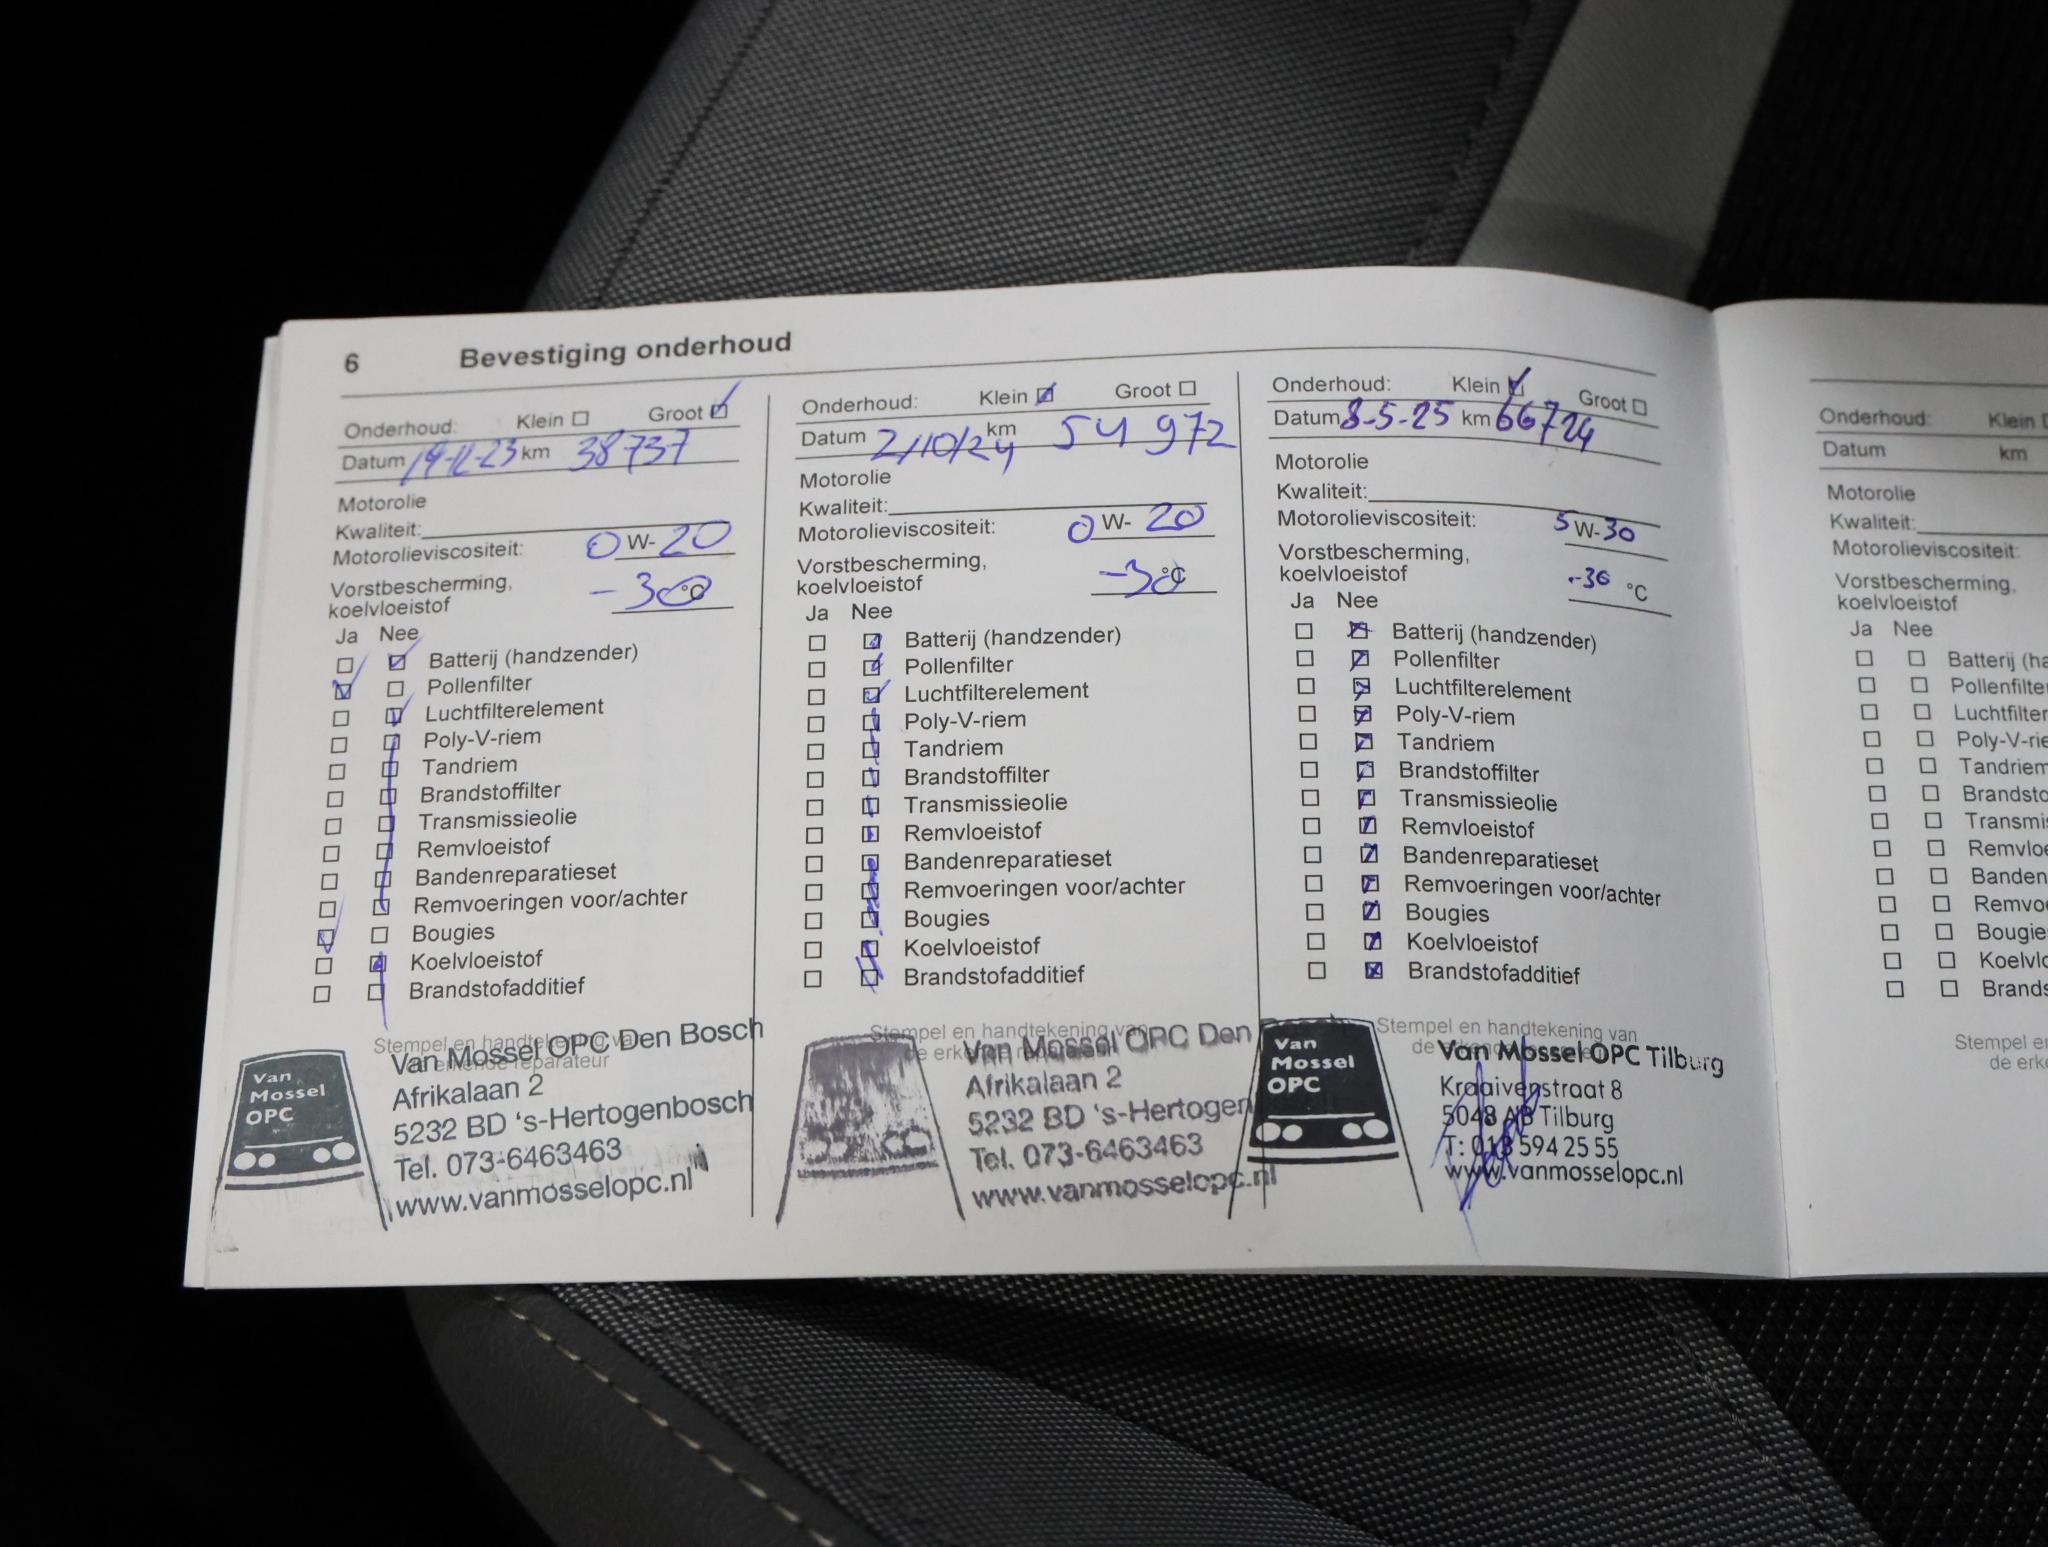 6 Bevestiging onderhoud
Onderhoud: Klein Groot
Datum km 38737
Motorolie
Kwaliteit:
Motorolieviscositeit: 0 W- 20
Vorstbescherming,
koelvloeistof -30 °C
Ja Nee
Batterij (handzender)
Pollenfilter
Luchtfilterelement
Poly-V-riem
Tandriem
Brandstoffilter
Transmissieolie
Remvloeistof
Bandenreparatieset
Remvoeringen voor/achter
Bougies
Koelvloeistof
Brandstofadditief
Stempel en handtekening van
de erkende reparateur
Van
Mossel
OPC
Van Mossel OPC Den Bosch
Afrikalaan 2
5232 BD 's-Hertogenbosch
Tel. 073-6463463
www.vanmosselopc.nl
Onderhoud: Klein Groot
Datum 2/10/24 km 54 972
Motorolie
Kwaliteit:
Motorolieviscositeit: 0 W- 20
Vorstbescherming,
koelvloeistof -30 °C
Ja Nee
Batterij (handzender)
Pollenfilter
Luchtfilterelement
Poly-V-riem
Tandriem
Brandstoffilter
Transmissieolie
Remvloeistof
Bandenreparatieset
Remvoeringen voor/achter
Bougies
Koelvloeistof
Brandstofadditief
Stempel en handtekening van
de erkende reparateur
Van Mossel OPC Den
Afrikalaan 2
5232 BD 's-Hertogen
Tel. 073-6463463
www.vanmosselopc.nl
Onderhoud: Klein Groot
Datum 8-5-25 km 66724
Motorolie
Kwaliteit:
Motorolieviscositeit: 5 W-30
Vorstbescherming,
koelvloeistof -36 °C
Ja Nee
Batterij (handzender)
Pollenfilter
Luchtfilterelement
Poly-V-riem
Tandriem
Brandstoffilter
Transmissieolie
Remvloeistof
Bandenreparatieset
Remvoeringen voor/achter
Bougies
Koelvloeistof
Brandstofadditief
Stempel en handtekening van
Van
Mossel
OPC
Van Mossel OPC Tilburg
Kraaivenstraat 8
5048 AB Tilburg
T: 013 594 25 55
www.vanmosselopc.nl
Onderhoud: Klein
Datum km
Motorolie
Kwaliteit:
Motorolieviscositeit:
Vorstbescherming,
koelvloeistof
Ja Nee
Batterij (ha
Pollenfilte
Luchtfilter
Poly-V-rie
Tandriem
Brandsto
Transmis
Remvloe
Banden
Remvo
Bougie
Koelvlo
Brands
Stempel e
de erke